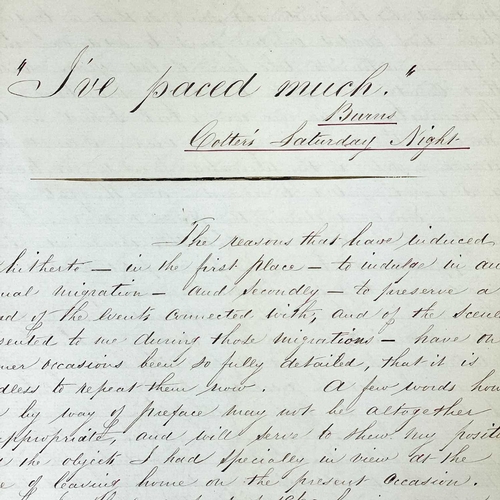 "I've paced much."
Burns
Cotter's Saturday Night
The reasons that have induced
hitherto – in the first place – to indulge in an
nual migration – and secondly – to preserve a
d of the events connected with, and of the scene
sented to me during those migrations – have on
mer occasions been so fully detailed, that it is
dless to repeat them now. A few words how
by way of preface may not be altogether
appropriate, and will serve to shew my positi
the objects I had specially in view at the
e of leaving home on the present occasion.